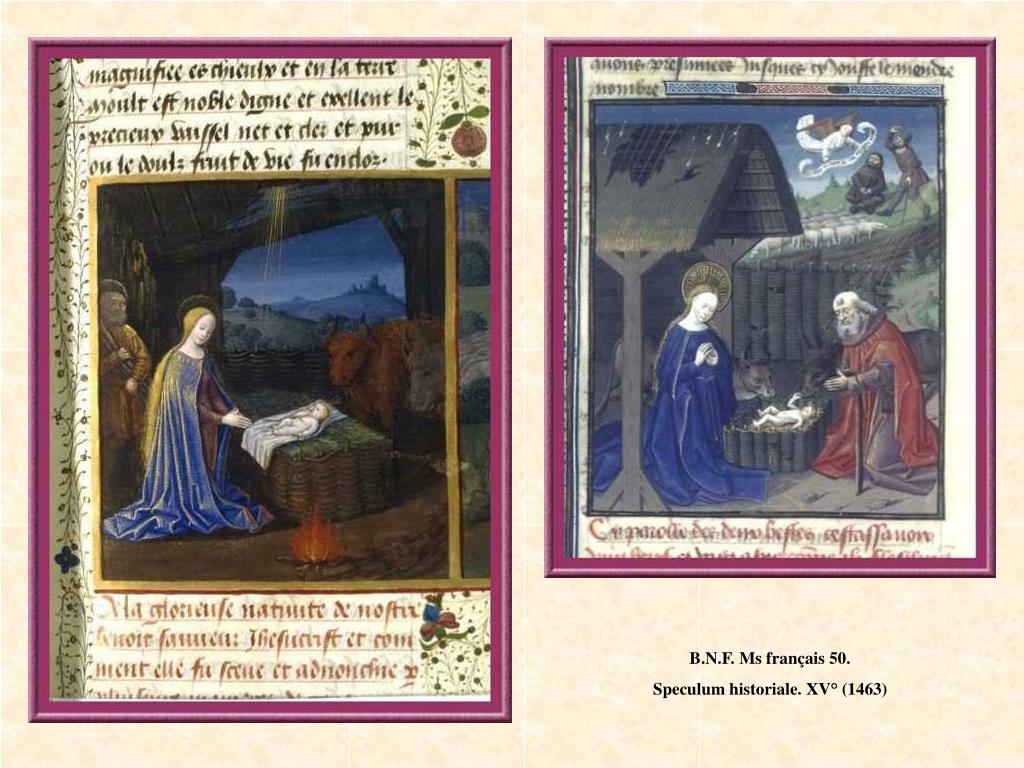 magnifiee es chieulx et en la terre
moult est noble digne et exellent le
precieux vaissel net et cler et pur
ou le doulz fruit de vie fu enclos.
A la glorieuse nativite de nostre
benoit sauveur Jhesucrist et com
ment elle fu sceue et adnonchie p
avons presumees Jusques cy Jouste le mendre
nombre
Cy parolle des deux bestes cestassavoir
B.N.F. Ms français 50.
Speculum historiale. XV° (1463)